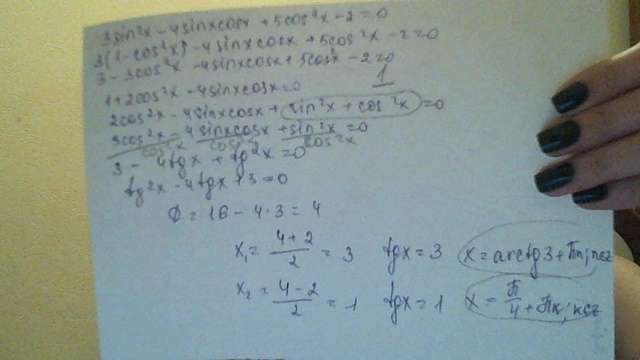 3sin²x - 4sinxcosx + 5cos²x - 2 = 0
3(1 - cos²x) - 4sinxcosx + 5cos²x - 2 = 0
3 - 3cos²x - 4sinxcosx + 5cos²x - 2 = 0
1
1 + 2cos²x - 4sinxcosx = 0
2cos²x - 4sinxcosx + sin²x + cos²x = 0
3cos²x - 4sinxcosx + sin²x = 0
cos²x cos²x cos²x
3 - 4tgx + tg²x = 0
tg²x - 4tgx + 3 = 0
D = 16 - 4·3 = 4
x₁ = (4+2)/2 = 3 tgx = 3 x = arctg3 + πn; n∈z
x₂ = (4-2)/2 = 1 tgx = 1 x = π/4 + πк; к∈z